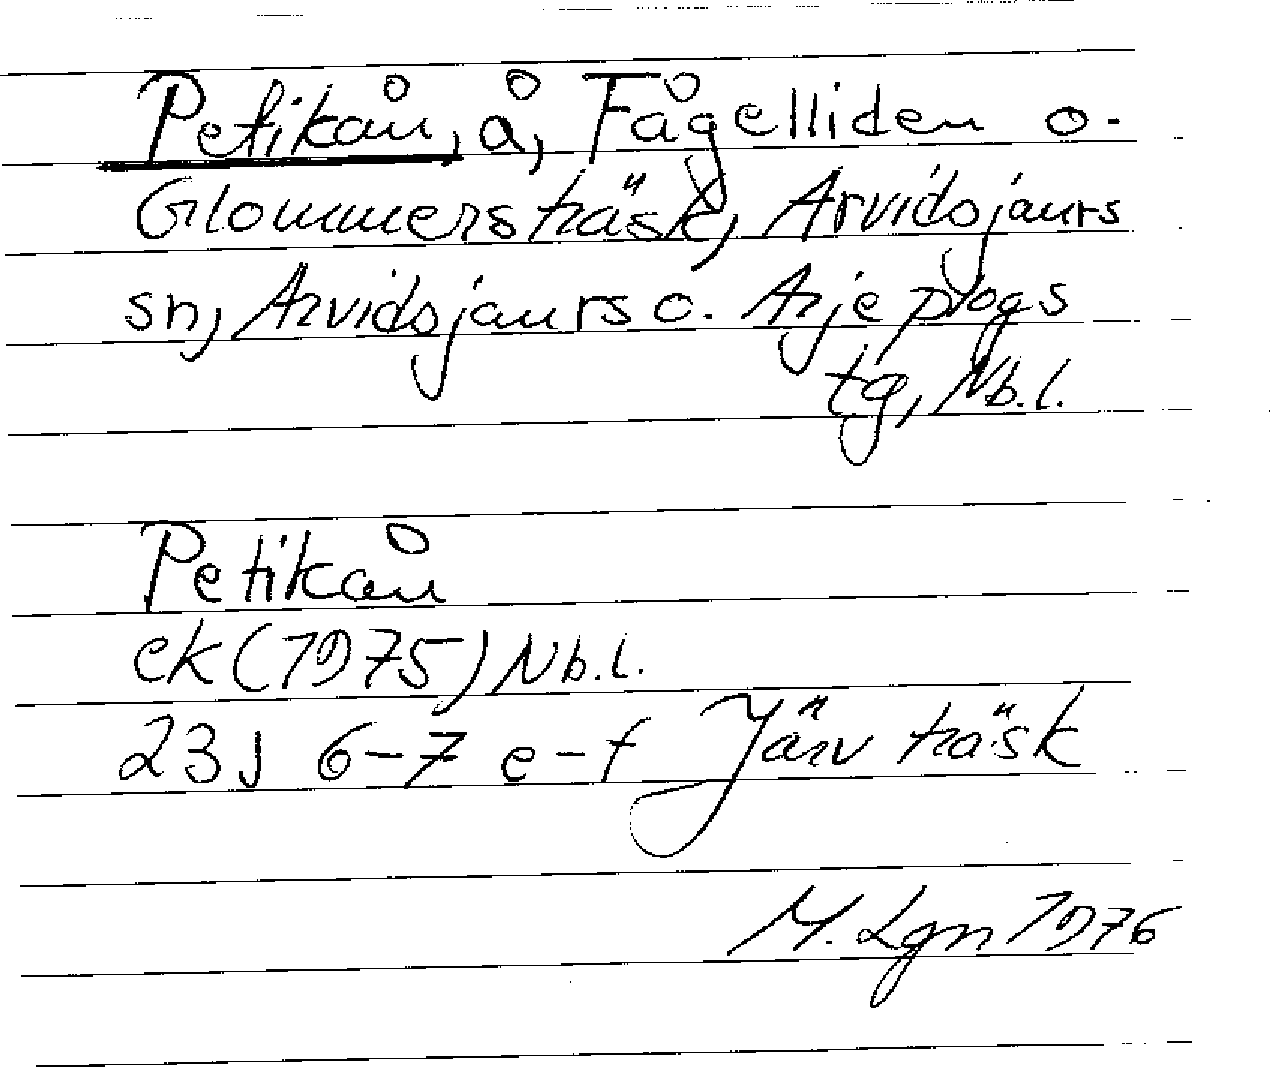 Petikån, å, Fågelliden o.
Glommersträsk, Arvidsjaurs
sn, Arvidsjaurs o. Arjeplogs
tg, Nb.l.
Petikån
ek (1975) Nb.l.
23J 6-7 e-f Järvträsk
M. Lgn 1976